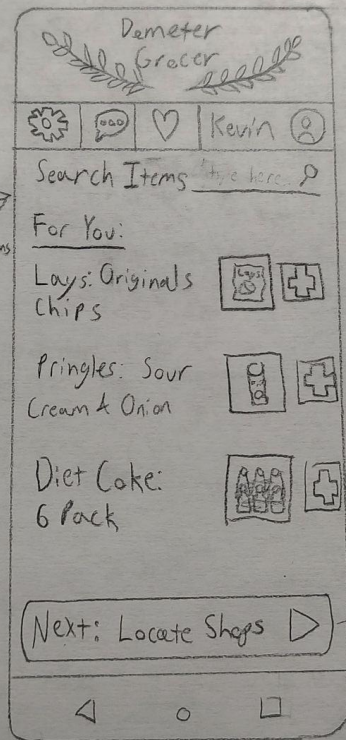 Demeter
Grocer
Kevin
Search Items type here
For You:
Lays: Originals
Chips
Lays
Pringles: Sour
Cream & Onion
Diet Coke:
6 Pack
Next: Locate Shops